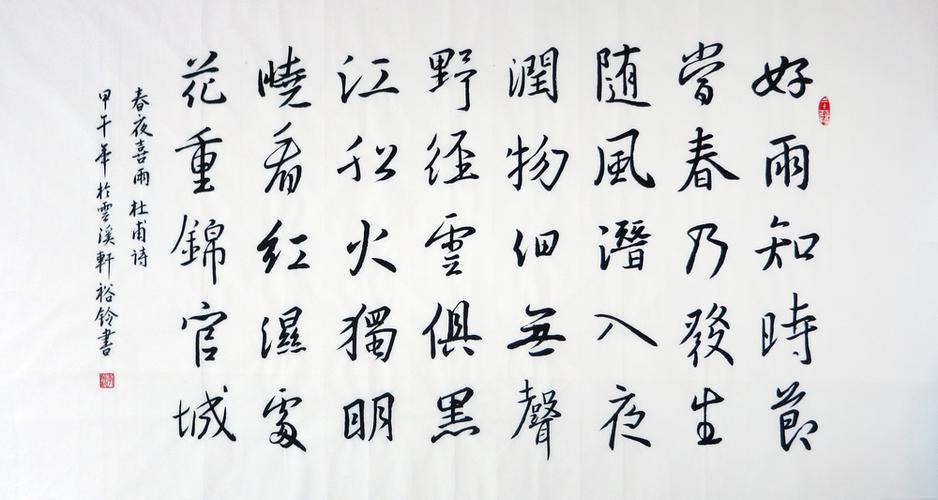 好雨知時節
當春乃發生
随風潛入夜
潤物細無聲
野徑雲俱黑
江船火獨明
曉看紅濕處
花重錦官城
春夜喜雨 杜甫诗
甲午年於雲溪軒 裕鈴書